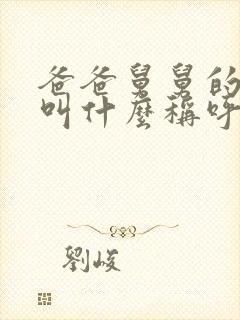 爸爸舅舅的
叫什麼稱呼
劉峻